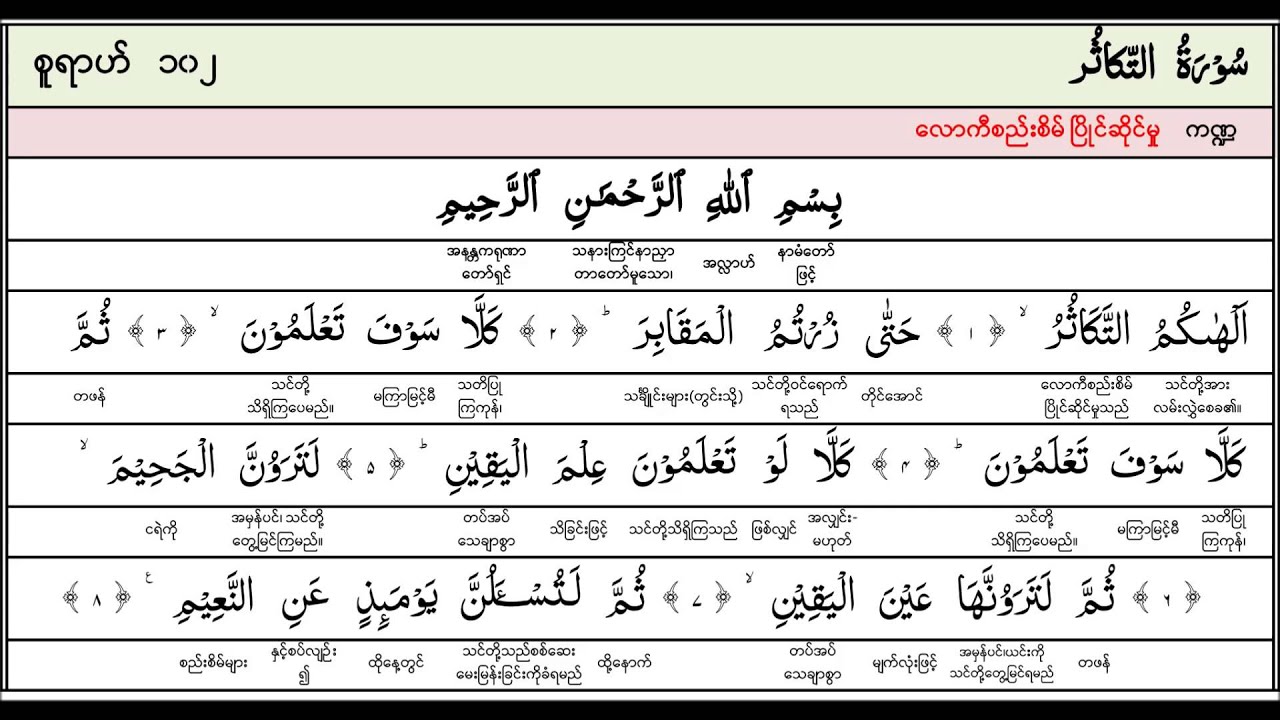 စူရာဟ် ၁၀၂ سُوْرَةُ التَّكَاثُر
ကဏ္ဍ လောကီစည်းစိမ် ပြိုင်ဆိုင်မှု
بِسْمِ ٱللَّهِ ٱلرَّحْمَٰنِ ٱلرَّحِيمِ
နာမံတော်ဖြင့် အလ္လာဟ် သနားကြင်နာညှာတာတော်မူသော၊ အနန္တကရုဏာတော်ရှင်
اَلْهٰىكُمُ التَّكَاثُرُ ۙ ﴿۱﴾ حَتّٰى زُرْتُمُ الْمَقَابِرَ ؕ ﴿۲﴾ كَلَّا سَوْفَ تَعْلَمُوْنَ ۙ ﴿۳﴾ ثُمَّ
သင်တို့အားလမ်းလွှဲစေခဲ၏။ လောကီစည်းစိမ်ပြိုင်ဆိုင်မှုသည် တိုင်အောင် သင်တို့ဝင်ရောက်ရသည် သင်္ချိုင်းများ(တွင်းသို့) သတိပြုကြကုန်၊ မကြာမြင့်မီ သင်တို့သိရှိကြပေမည်။ တဖန်
كَلَّا سَوْفَ تَعْلَمُوْنَ ؕ ﴿۴﴾ كَلَّا لَوْ تَعْلَمُوْنَ عِلْمَ الْيَقِيْنِ ؕ ﴿۵﴾ لَتَرَوُنَّ الْجَحِيْمَ ۙ
သတိပြုကြကုန်၊ မကြာမြင့်မီ သင်တို့သိရှိကြပေမည်။ အလျှင်း-မဟုတ် ဖြစ်လျှင် သင်တို့သိရှိကြသည် သိခြင်းဖြင့် တပ်အပ်သေချာစွာ အမှန်ပင်၊ သင်တို့တွေ့မြင်ကြမည်။ ငရဲကို
﴿۶﴾ ثُمَّ لَتَرَوُنَّهَا عَيْنَ الْيَقِيْنِ ۙ ﴿۷﴾ ثُمَّ لَتُسْـَٔلُنَّ يَوْمَىِٕذٍ عَنِ النَّعِيْمِ ۧ ﴿۸﴾
တဖန် အမှန်ပင်၊ယင်းကိုသင်တို့တွေ့မြင်ရမည် မျက်လုံးဖြင့် တပ်အပ်သေချာစွာ ထို့နောက် သင်တို့သည်စစ်ဆေးမေးမြန်းခြင်းကိုခံရမည် ထိုနေ့တွင် နှင့်စပ်လျဉ်း၍ စည်းစိမ်များ